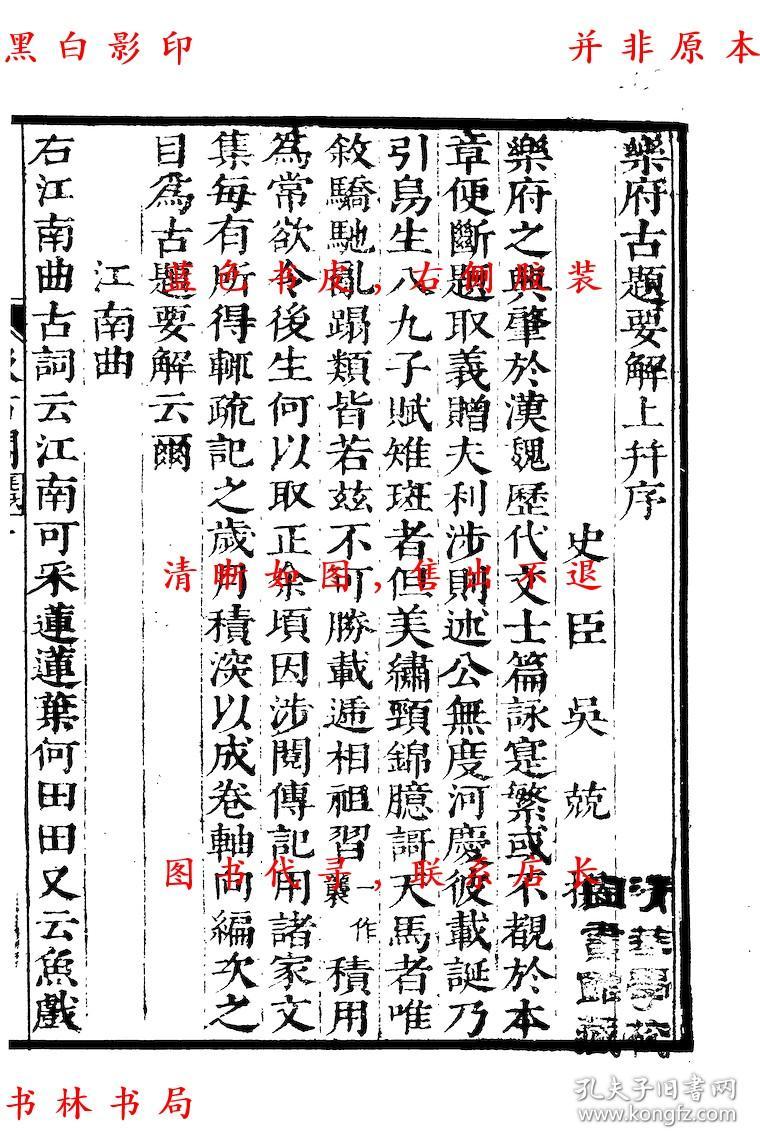 黑白影印
并非原本
樂府古題要解上幷序
史臣吳兢
樂府之興肇於漢魏歷代文士篇詠寔繁或不覩於本
章便斷題取義贈夫利涉則述公無度河慶彼載誕乃
引烏生八九子賦雉斑者但美繡頸錦臆謌天馬者唯
敘驕馳亂蹋類皆若玆不可勝載遞相祖習一作襲積用
爲常欲令後生何以取正余頃因涉閱傳記用諸家文
集每有所得輒疏記之歲月積深以成卷軸向編次之
目爲古題要解云爾
江南曲
右江南曲古詞云江南可采蓮蓮葉何田田又云魚戲
蓝色书皮,右侧胶装
清晰如图,售出不退
图书代寻,联系店长
圖書館藏
书林书局
孔夫子旧书网
www.kongfz.com